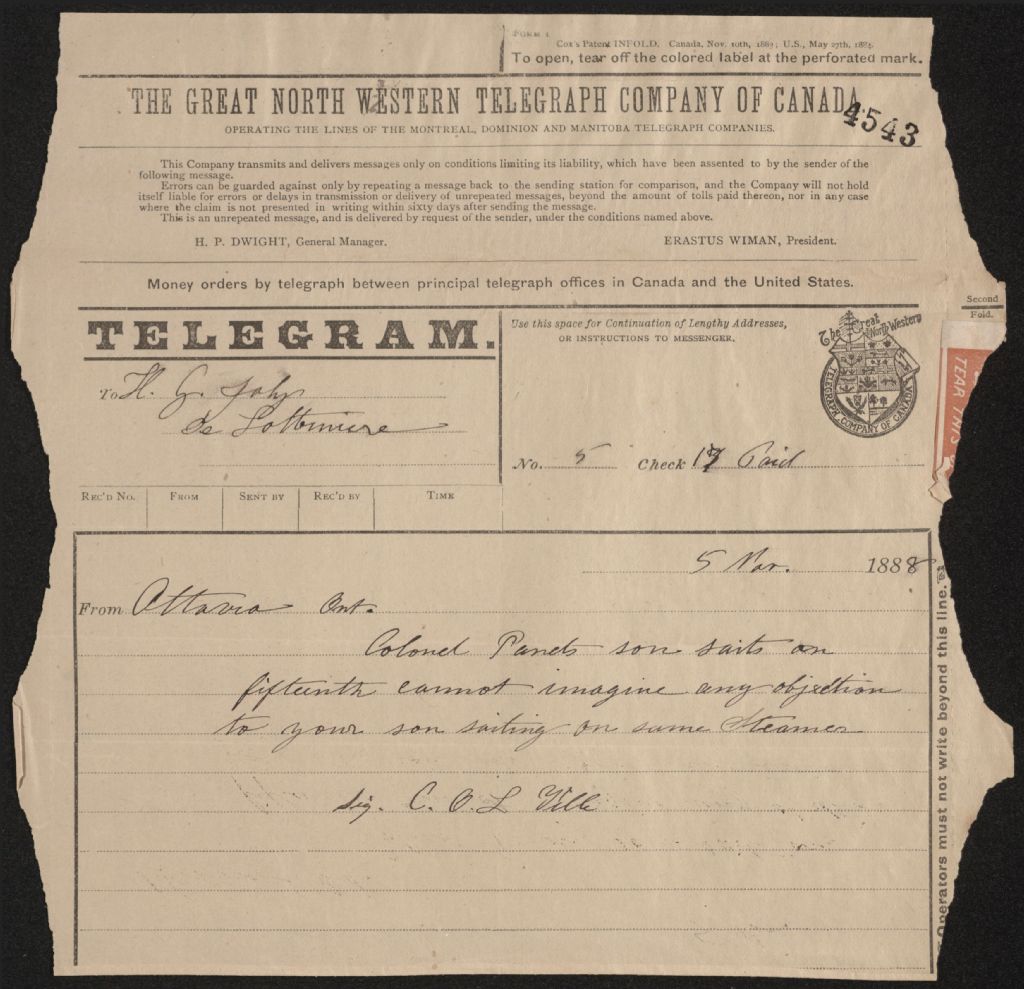 FORM 1
Cox's Patent INFOLD. Canada, Nov. 10th, 1882; U.S., May 27th, 1884.
To open, tear off the colored label at the perforated mark.
THE GREAT NORTH WESTERN TELEGRAPH COMPANY OF CANADA
4543
OPERATING THE LINES OF THE MONTREAL, DOMINION AND MANITOBA TELEGRAPH COMPANIES.
This Company transmits and delivers messages only on conditions limiting its liability, which have been assented to by the sender of the
following message.
Errors can be guarded against only by repeating a message back to the sending station for comparison, and the Company will not hold
itself liable for errors or delays in transmission or delivery of unrepeated messages, beyond the amount of tolls paid thereon, nor in any case
where the claim is not presented in writing within sixty days after sending the message.
This is an unrepeated message, and is delivered by request of the sender, under the conditions named above.
H. P. DWIGHT, General Manager. ERASTUS WIMAN, President.
Money orders by telegraph between principal telegraph offices in Canada and the United States.
Second
Fold.
TELEGRAM.
Use this space for Continuation of Lengthy Addresses,
OR INSTRUCTIONS TO MESSENGER.
The Great North Western
TELEGRAPH COMPANY OF CANADA
TEAR THIS
To H. G. Joly
de Lotbiniere
No. 5 Check 17 Paid
REC'D NO. FROM SENT BY REC'D BY TIME
5 Mar. 1888
From Ottawa Ont.
Colonel Panets son sails on
fifteenth cannot imagine any objection
to your son sailing on same Steamer
Sig. C. O. L Ville
Operators must not write beyond this line.